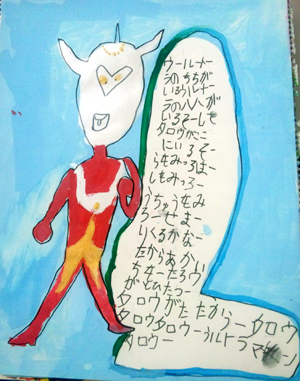 ウールナー
うのちちが
いるウルナー
うのハハが
いるそーして
タロウがここ
にいるそー
らをみっろまー
しもみっろー
うちゅうをみ
ろーせまー
りくるかなー
たからあから
ちをーたろウ
がとひたつー
タロウがたたからータロウ
タロウタロウーウルトラマン
タロウー